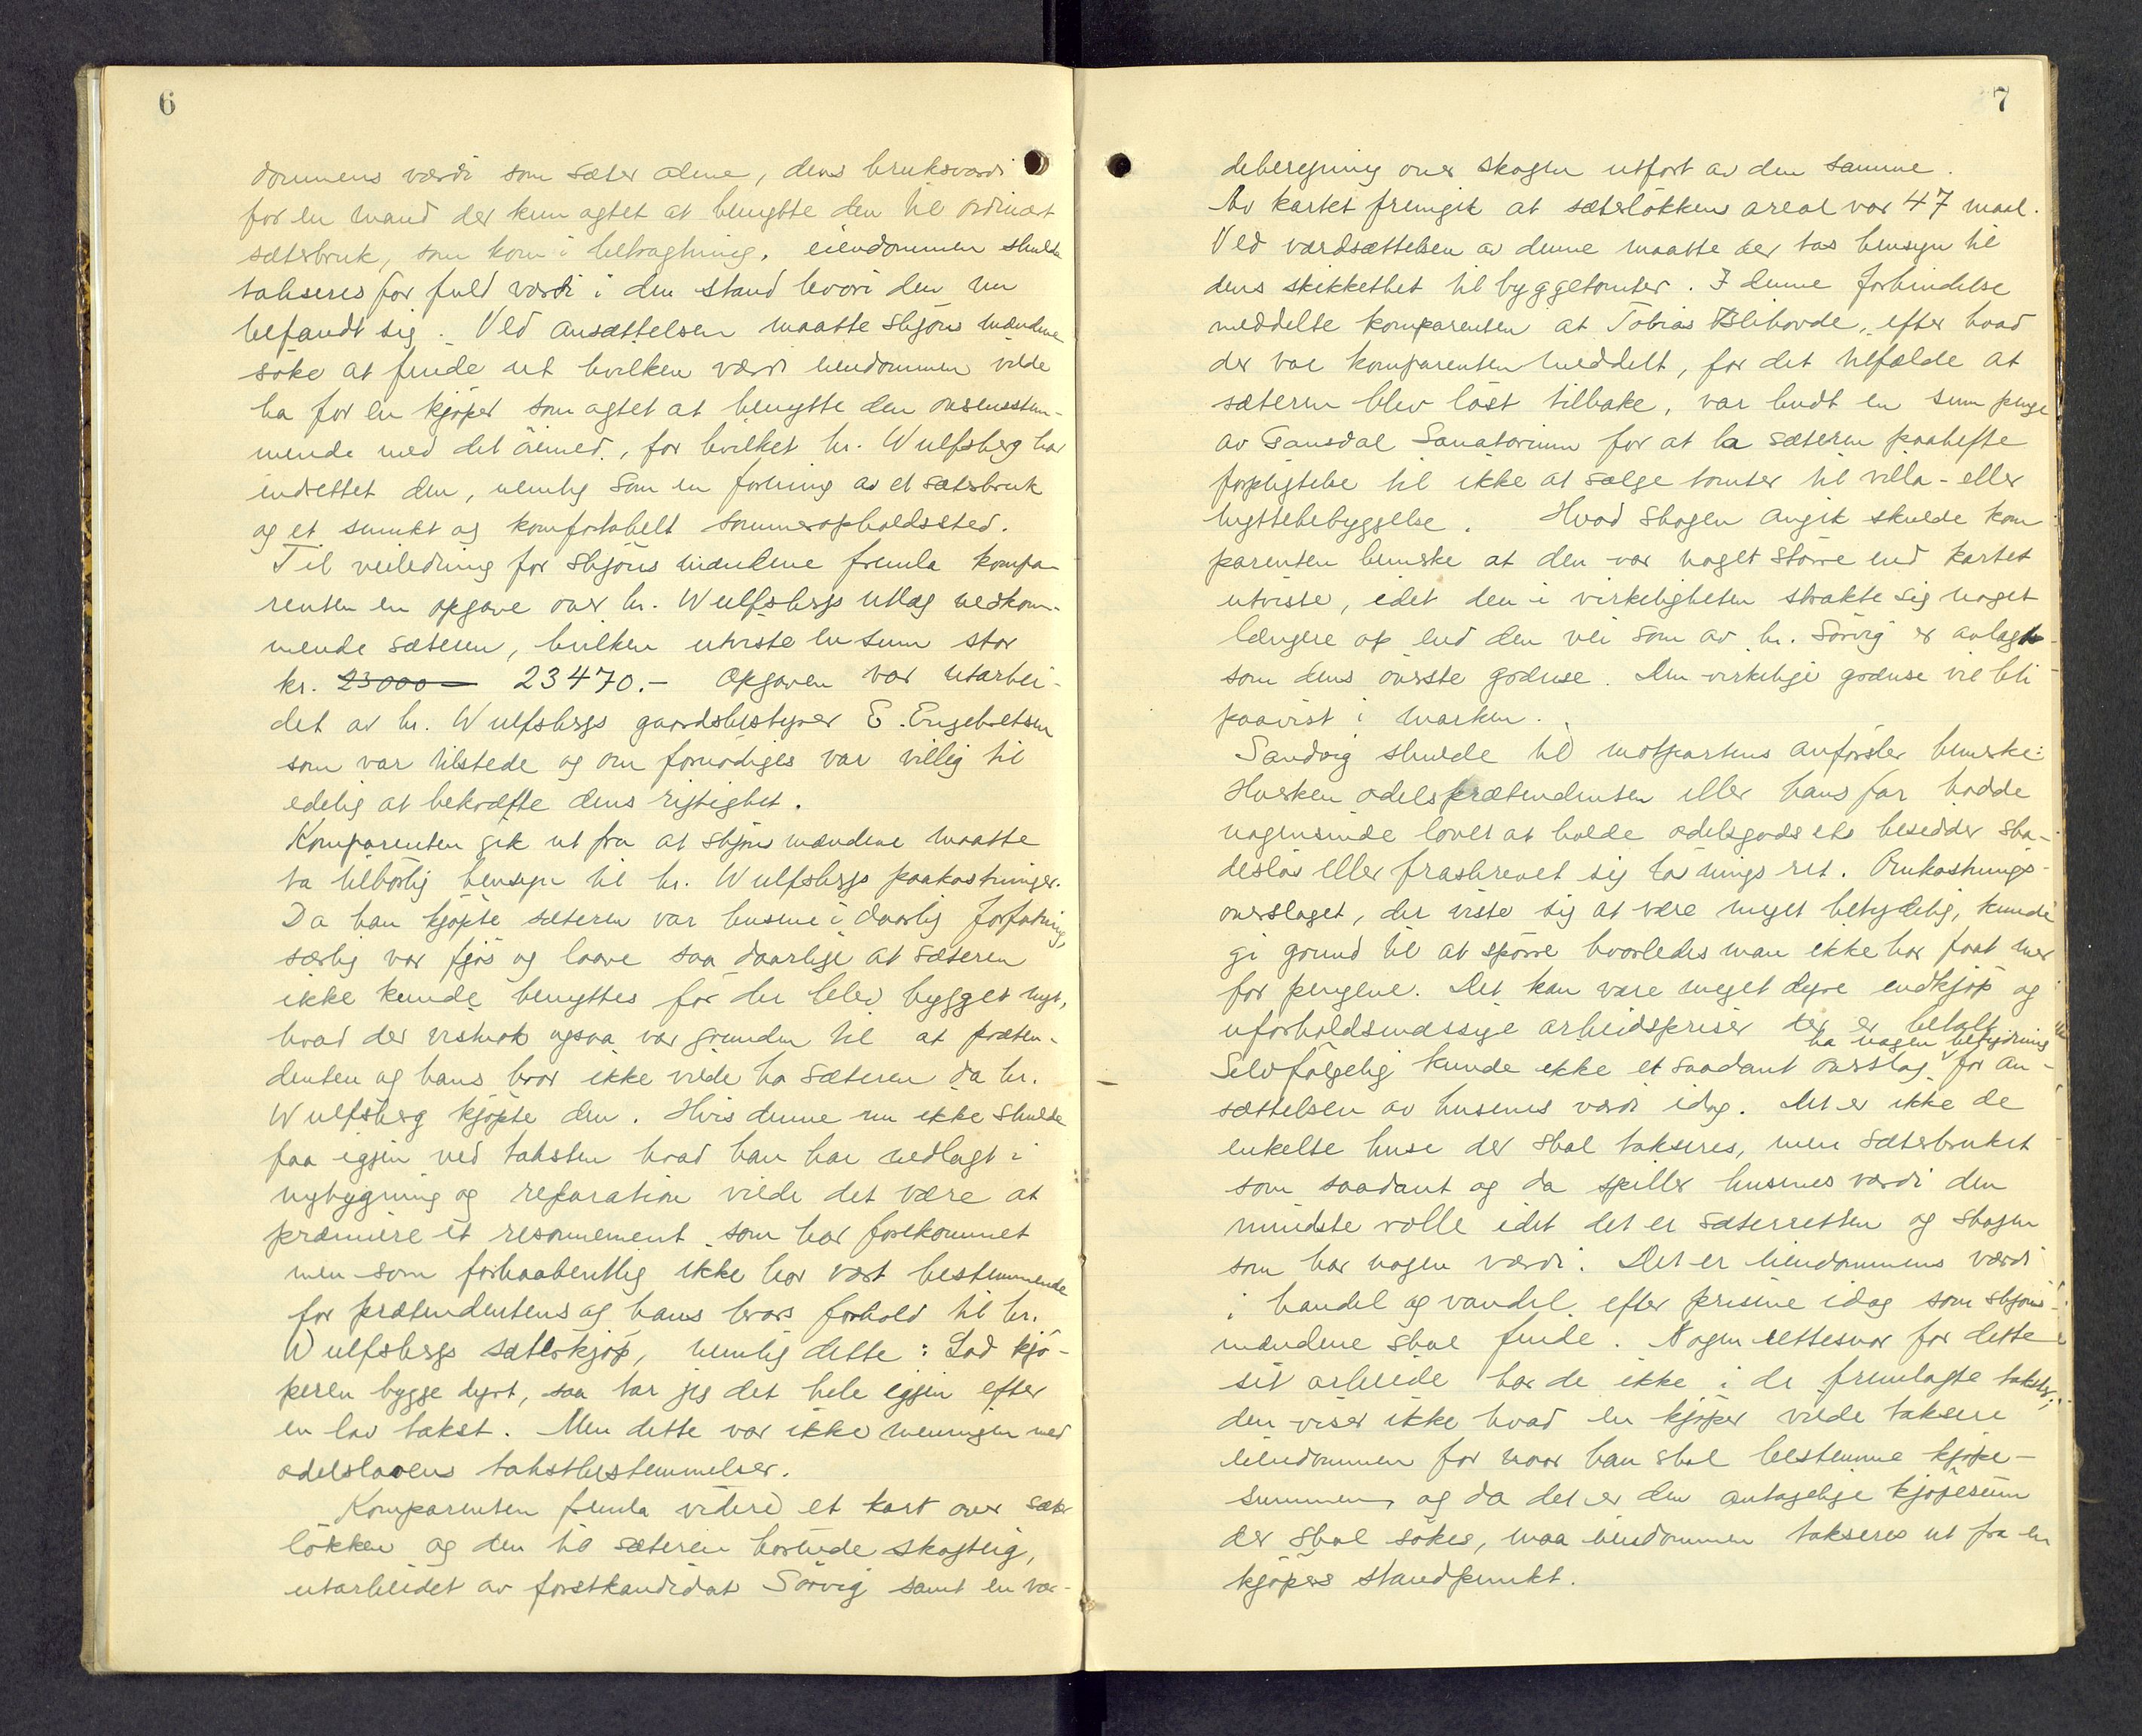 6
dommens værdi som sæter alene, dens bruksværdi
for en mand der kun agtet at benytte den til ordinært
sæterbruk, som kom i betragtning, eiendommen skulde
takseres for fuld værdi i den stand hvori den nu
befandt sig. Ved ansættelsen maatte skjønsmændene
søke at finde ut hvilken værdi eiendommen vilde
ha for en kjøper som agtet at benytte den overensstem-
mende med det øiemed, for hvilket hr. Wulfsberg har
indrettet den, nemlig som en forening av et sæterbruk
og et smukt og komfortabelt sommeropholdssted.
Til veiledning for skjønsmændene fremla kompa-
renten en opgave over hr. Wulfsbergs utlæg vedkom-
mende sæteren, hvilken utviste en sum stor
kr. 23000 23470.- Opgaven var utarbei-
det av hr. Wulfsbergs gaardsbestyrer E. Engebretsen
som var tilstede og om fornødiges var villig til
edelig at bekræfte dens rigtighet.
Komparenten gik ut fra at skjønsmændene maatte
ta tilbørlig hensyn til hr. Wulfsbergs paakostninger.
Da han kjøpte sæteren var husene i daarlig forfatning,
særlig var fjøs og laave saa daarlige at sæteren
ikke kunde benyttes før der blev bygget nyt,
hvad der vistnok ogsaa var grunden til at præten-
denten og hans bror ikke vilde ha sæteren da hr.
Wulfsberg kjøpte den. Hvis denne nu ikke skulde
faa igjen ved taksten hvad han har nedlagt i
nybygning og reparation vilde det være at
præmiere et resonnement som har forekommet
men som forhaabentlig ikke har vært bestemmende
for prætendentens og hans brors forhold til hr.
Wulfsbergs sæterkjøp, nemlig dette: Lad kjø-
peren bygge dyrt, saa tar jeg det hele igjen efter
en lav takst. Men dette var ikke meningen med
odelslovens takstbestemmelser.
Komparenten fremla videre et kart over sæter
løkken og den til sæteren hørende skogteig,
utarbeidet av forstkandidat Sørvig samt en vær-
7
deberegning over skogen utført av den samme.
Av kartet fremgik at sæterløkkens areal var 47 maal.
Ved værdsættelsen av denne maatte der tas hensyn til
dens skikkethet til byggetomter. I denne forbindelse
meddelte komparenten at Tobias Blihovde, efter hvad
der var komparenten meddelt, for det tilfælde at
sæteren blev løst tilbake, var budt en sum penge
av Gausdal Sanatorium for at la sæteren paahefte
forpligtelse til ikke at sælge tomter til villa- eller
hyttebebyggelse. Hvad skogen angik skulde kom
parenten bemerke at den var noget større end kartet
utviste, idet den i virkeligheten strakte sig noget
længere op end den vei som av hr. Sørvig er avlagt
som dens øverste grænse. Den virkelige grænse vil bli
paavist i marken.
Sandvig skulde til motpartens anførsler bemerke:
Hverken odelsprætendenten eller hans far hadde
nogensinde lovet at holde odelsgodsets besidder ska-
desløs eller fraskrevet sig løsningsret. Omkostnings-
overslaget, der viste sig at være meget betydelig, kunde
gi grund til at spørre hvorledes man ikke har faat mer
for pengene. Det kan være meget dyre indkjøp og
uforholdsmæssige arbeidspriser der er betalt.
ha nogen betydning
Selvfølgelig kunde ikke et saadant overslag for an-
sættelsen av husenes værdi idag. Det er ikke de
enkelte huse der skal takseres, men sæterbruket
som saadant og da spiller husenes værdi den
mindste rolle idet det er sæterretten og skogen
som har nogen værdi. Det er eiendommens værdi
i handel og vandel efter prisene idag som skjøns-
mændene skal finde. Nogen rettesnor for dette
sit arbeide har de ikke i de fremlagte takster;
den viser ikke hvad en kjøper vilde taksere
eiendommen for naar han skal bestemme kjøpe-
summen, og da det er den antagelige kjøpesum
der skal søkes, maa eiendommen takseres ut fra en
kjøpers standpunkt.